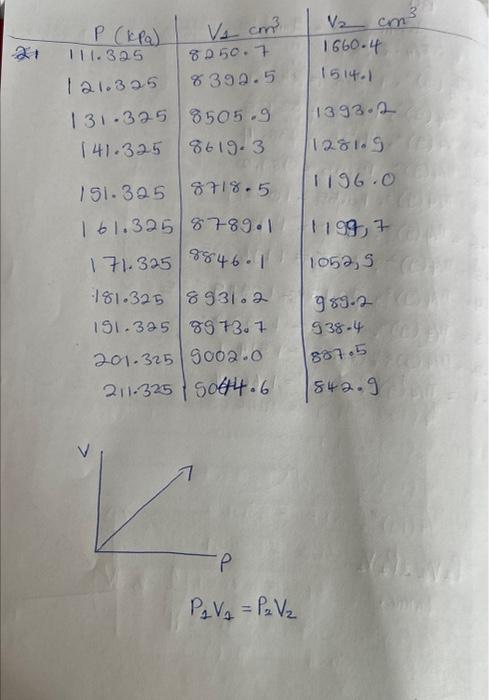 P (kPa) V1 cm³ V2 cm³
111.325 8250.7 1660.4
121.325 8392.5 1514.1
131.325 8505.9 1393.2
141.325 8619.3 1281.9
151.325 8718.5 1196.0
161.325 8789.1 1199,7
171.325 8846.1 1052,5
181.325 8931.2 989.2
191.325 8973.7 938.4
201.325 9002.0 887.5
211.325 9044.6 842.9
V
P
P1V1 = P2V2